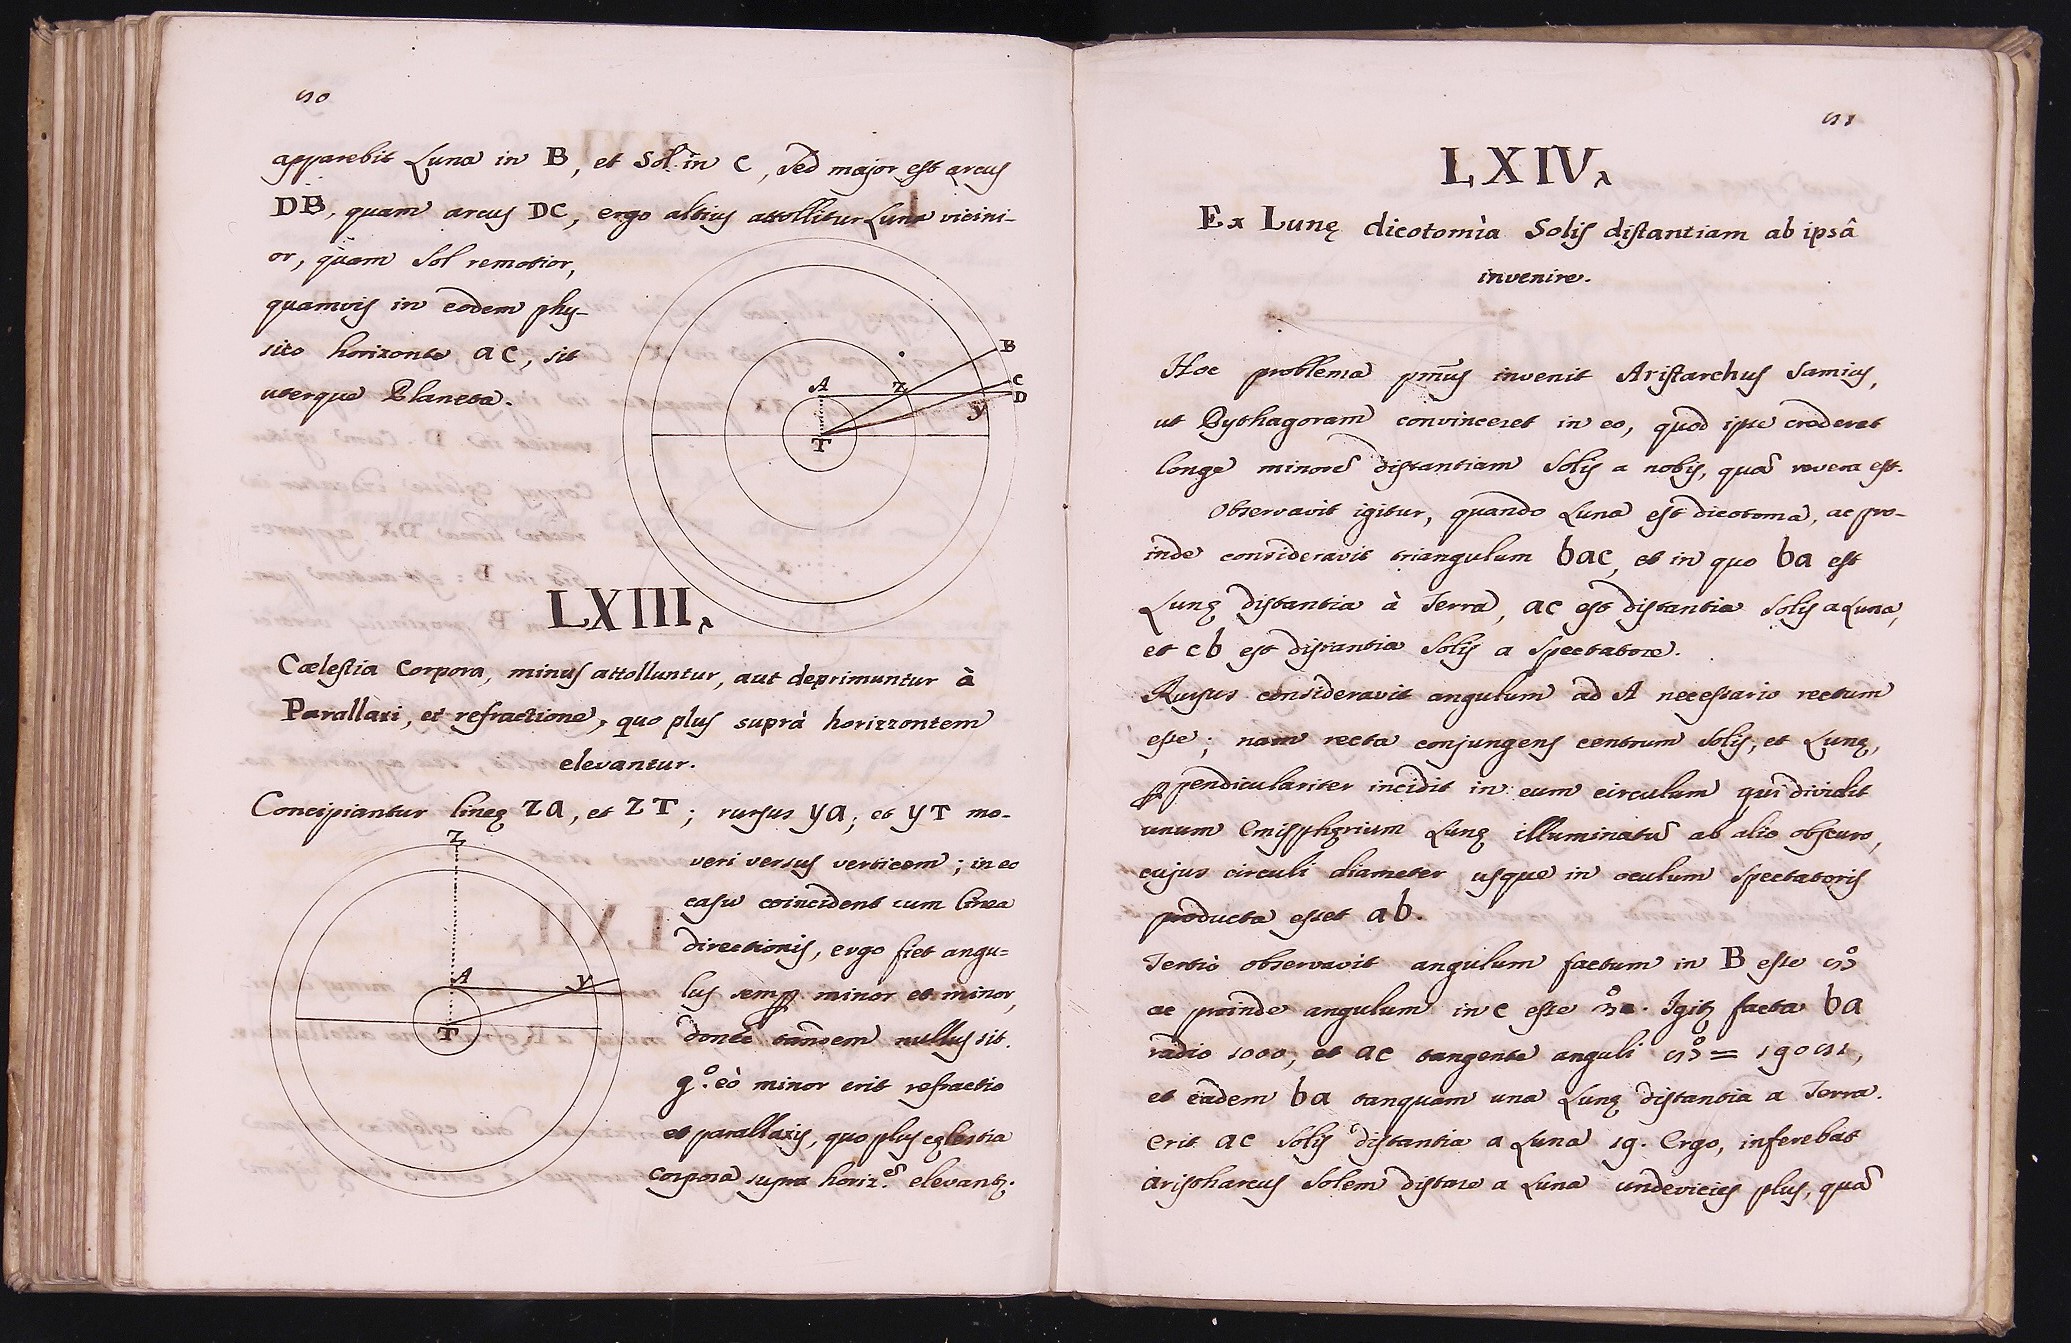 50
apparebit Luna in B, et Sol in C, sed major est arcus
DB, quam arcus DC, ergo altius attollitur Luna vicini-
or, quàm Sol remotior,
quamvis in eodem phy-
sico horizonte ac, sit
uterque Planeta.
B
A
Z
C
D
y
T
LXIII.
Cælestia corpora, minus attolluntur, aut deprimuntur à
Parallaxi, et refractione, quo plus suprà horizzontem
elevantur.
Concipiantur lineę za, et ZT; rursus ya; et yT mo-
Z
veri versus verticem; in eo
casu coincident cum linea
directionis, ergo fiet angu=
A
y
lus semp minor et minor,
T
donec tandem nullus sit.
gº. eò minor erit refractio
et parallaxis, quo plus cęlestia
corpora supra horiz.es elevantę.
51
LXIV.
Ex Lunę dicotomìa Solis distantiam ab ipsâ
invenire.
Hoc problema pm̃us invenit Aristarchus Samius,
ut Pythagoram convinceret in eo, quod ipse crederet
longe minorẽ distantiam Solis a nobis, quã revera est.
Observavit igitur, quando Luna est dicotoma, ac pro-
inde consideravit triangulum bac, et in quo ba est
Lunę distantia à Terra, ac est distantia Solis a Luna,
et cb est distantia Solis a Spectatore.
Rursus consideravit angulum ad A necessario rectum
esse; nam recta conjungens centrum Solis, et Lunę,
ppendiculariter incidit in eum circulum qui dividit
unum Emisphęrium Lunę illuminatũ ab alio obscuro,
cujus circuli diameter usque in oculum Spectatoris
producta esset ab.
Tertiò observavit angulum factum in B esse
ac proinde angulum in c esse Igitę facta ba
radio 1000, et ac tangente anguli = 19051,
et eadem ba tanquam una Lunę distantia a Terra.
erit ac Solis distantia a Luna 19. Ergo, inferebat
Aristharcus Solem distare a Luna undevicies plus, quã